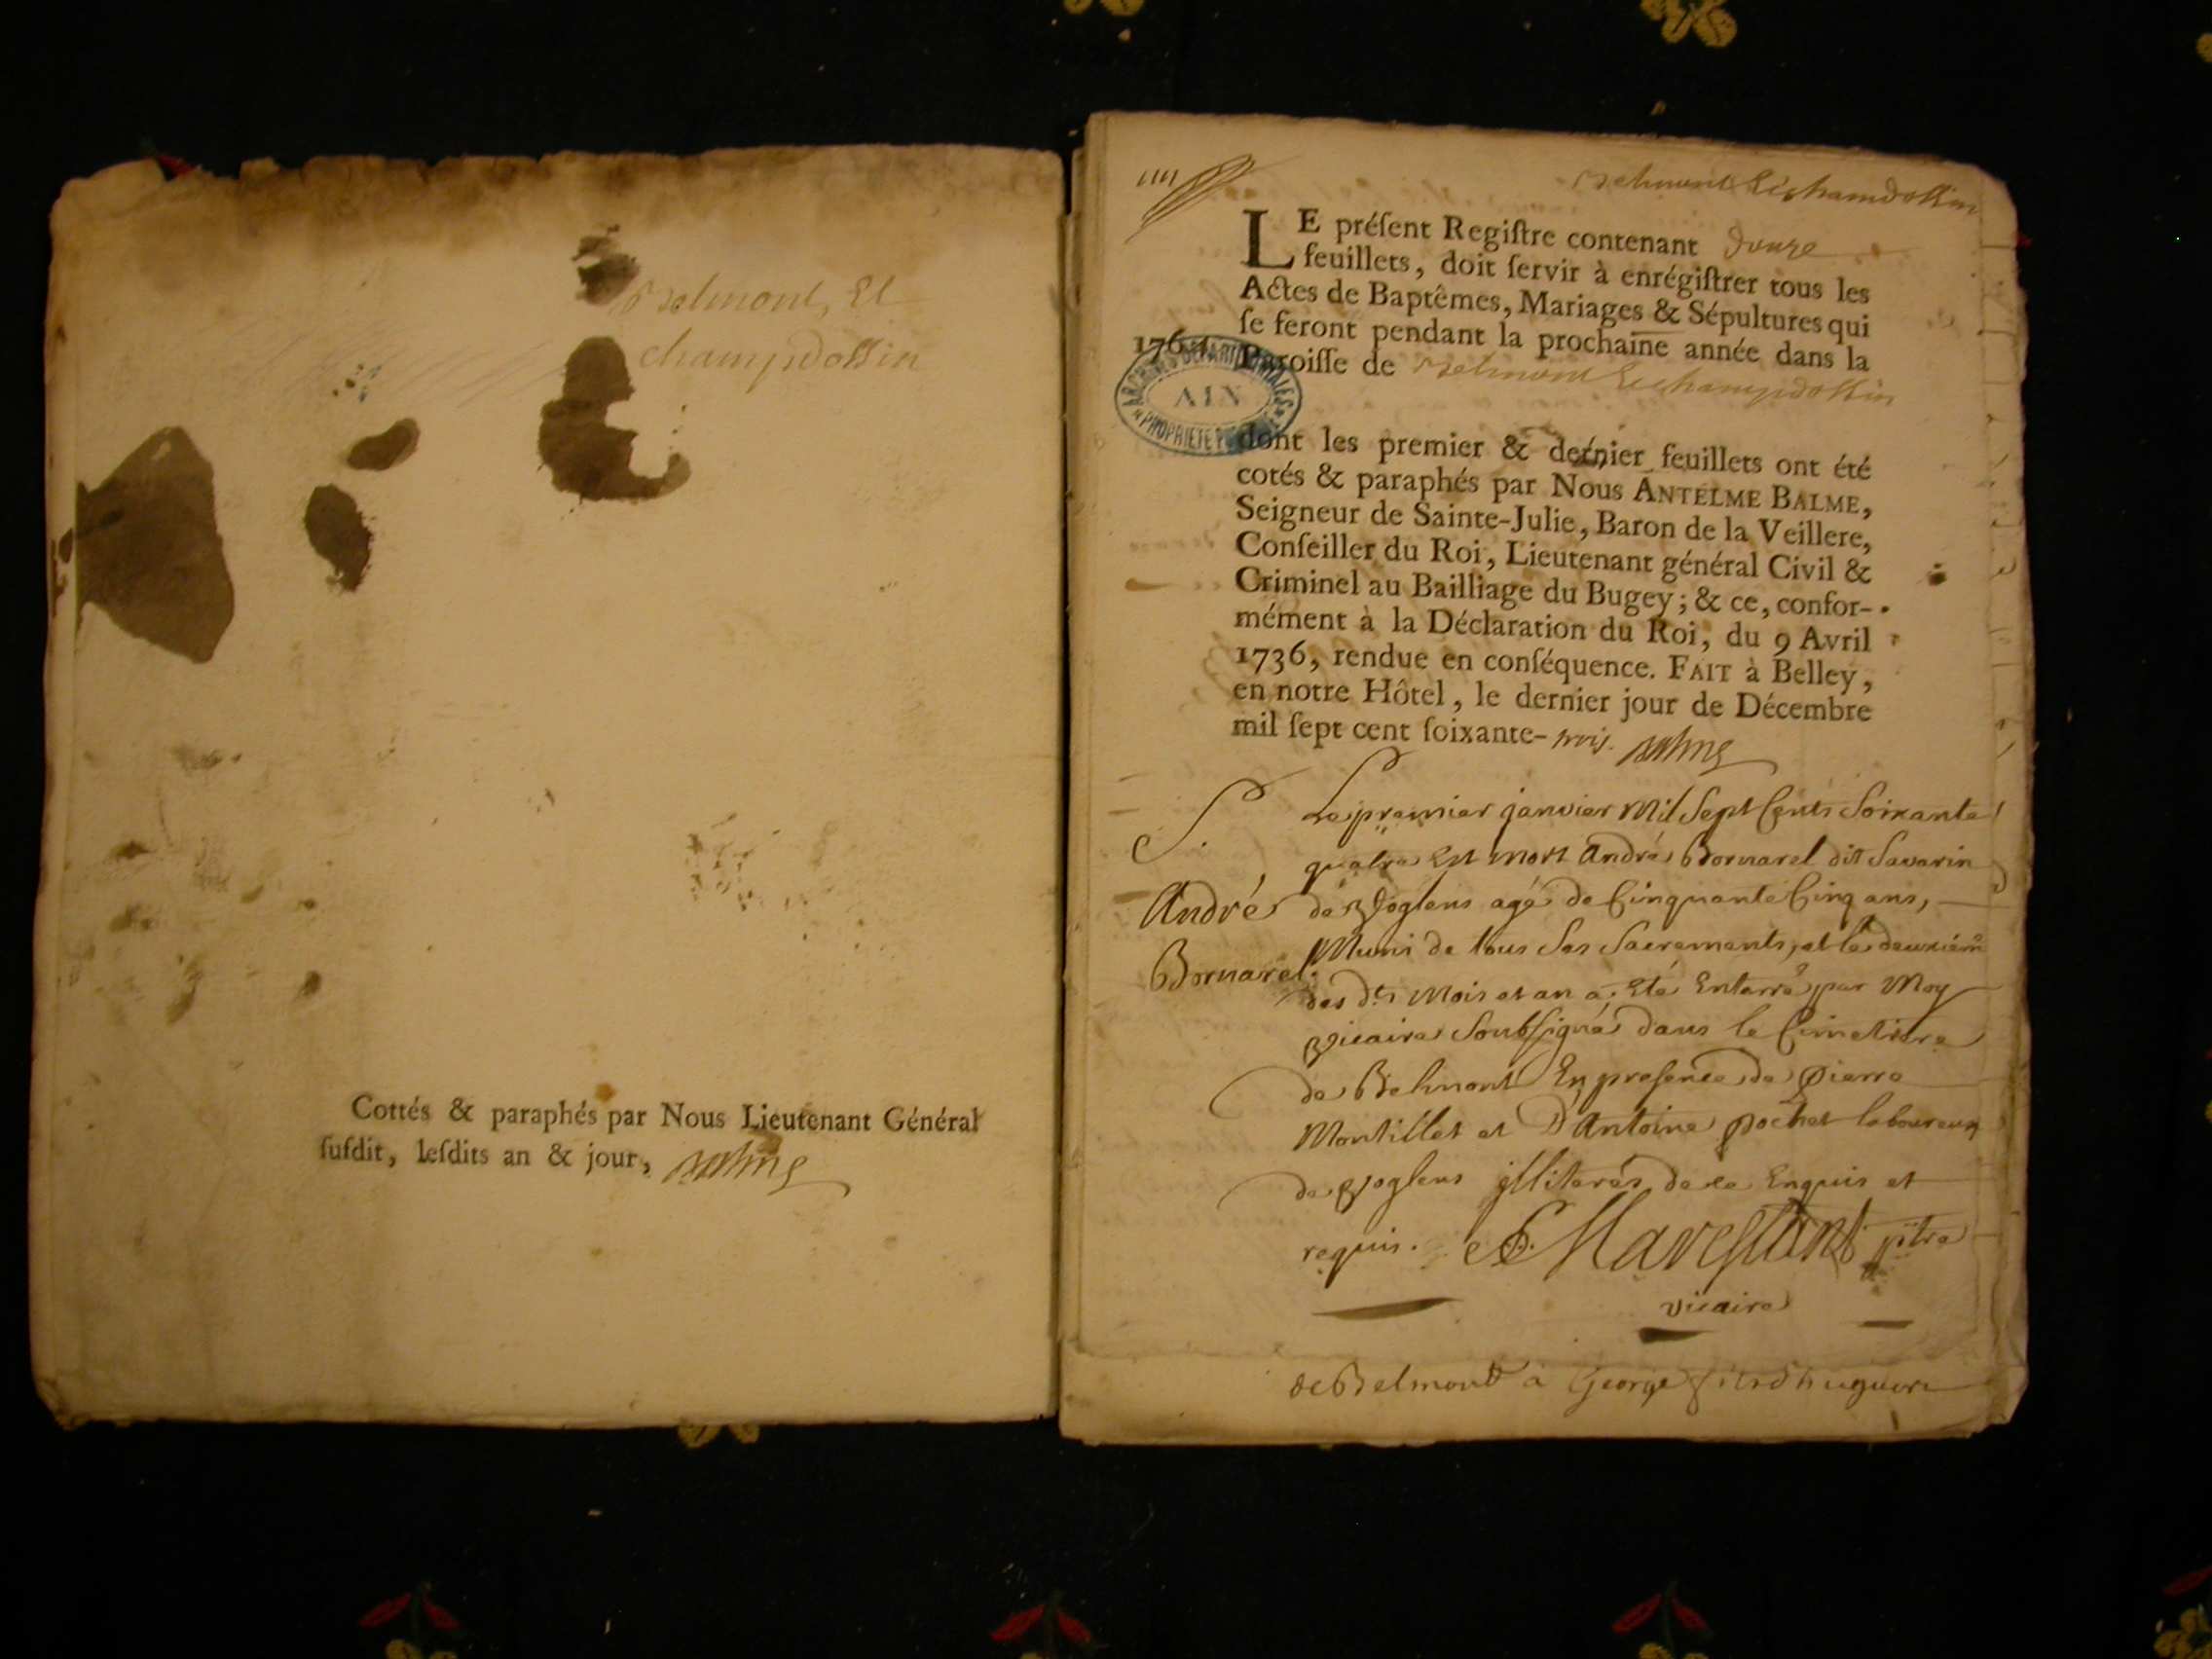 Belmont, Et
champdossin
Cottés & paraphés par Nous Lieutenant Général
ſuſdit, leſdits an & jour, Balme
Belmont Et chamdossin
LE préſent Regiſtre contenant douze
feuillets, doit ſervir à enrégiſtrer tous les
Actes de Baptêmes, Mariages & Sépultures qui
ſe feront pendant la prochaine année dans la
1764
Paroiſſe de Belmont Et champdossin
ARCHIVES DÉPARTEMENTALES
AIN
PROPRIÉTÉ
dont les premier & dernier feuillets ont été
cotés & paraphés par Nous ANTELME BALME,
Seigneur de Sainte-Julie, Baron de la Veillere,
Conſeiller du Roi, Lieutenant général Civil &
Criminel au Bailliage du Bugey; & ce, confor-
mément à la Déclaration du Roi, du 9 Avril
1736, rendue en conſéquence. FAIT à Belley,
en notre Hôtel, le dernier jour de Décembre
mil ſept cent ſoixante-trois. Balme
S.
André
Bornarel.
Le premier janvier Mil Sept Cents Soixante
quatre Est mort André Bornarel dit Savarin
de Voglens agé de Cinquante Cinq ans,
Muni de tous Ses Sacrements, et le deuxiém
des dts Mois et an a Eté Enterré par Moy
Vicaire Soubsigné dans le Cimetiere
de Belmont En presence de Pierre
Montillet et D'Antoine Pochet laboureurs
de Voglens illiterés de ce Enquis et
requis. Marestant ptre
vicaire
de Belmont a George fils d'huguere